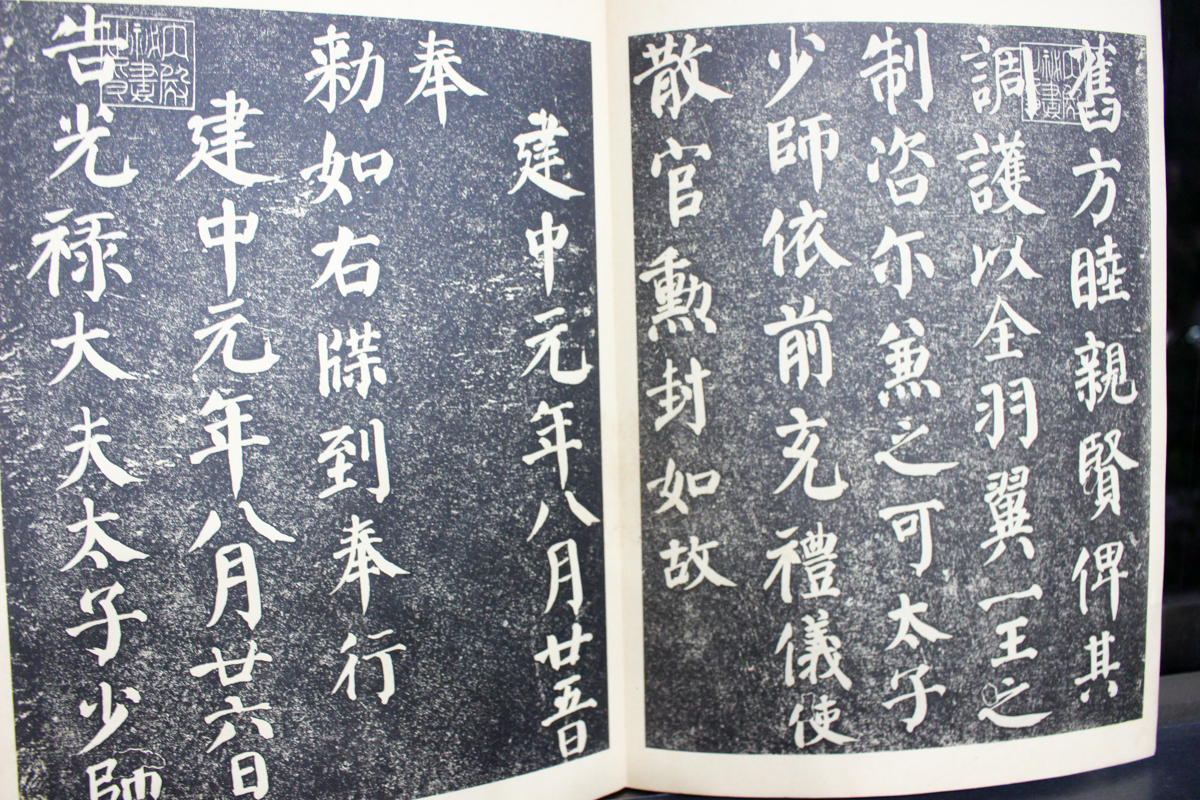 舊方睦親賢俾其
調護以全羽翼一王之
制咨尓兼之可太子
少師依前充禮儀使
散官勲封如故
建中元年八月廿五日
奉
勑如右牒到奉行
建中元年八月廿六日
告光禄大夫太子少師